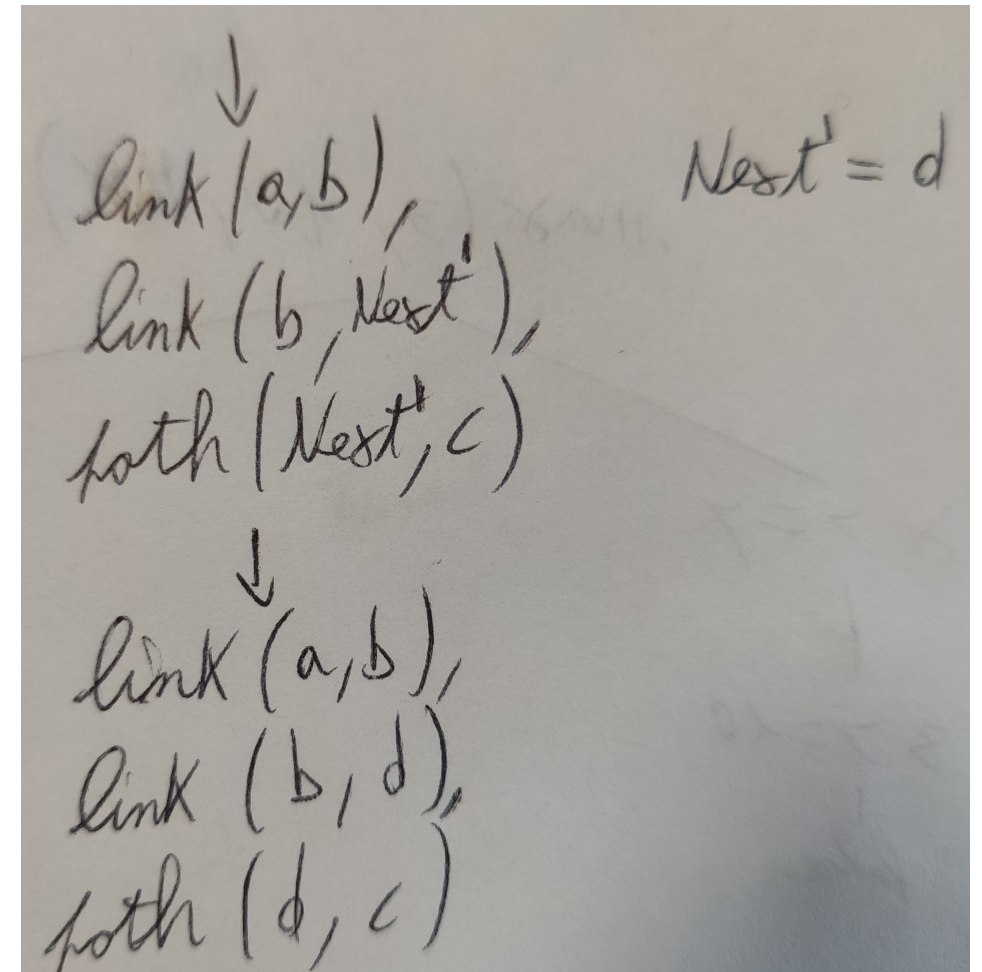 ↓
link (a,b),	Next' = d
link (b, Next'),
path (Next', c)
↓
link (a,b),
link (b, d),
path (d, c)